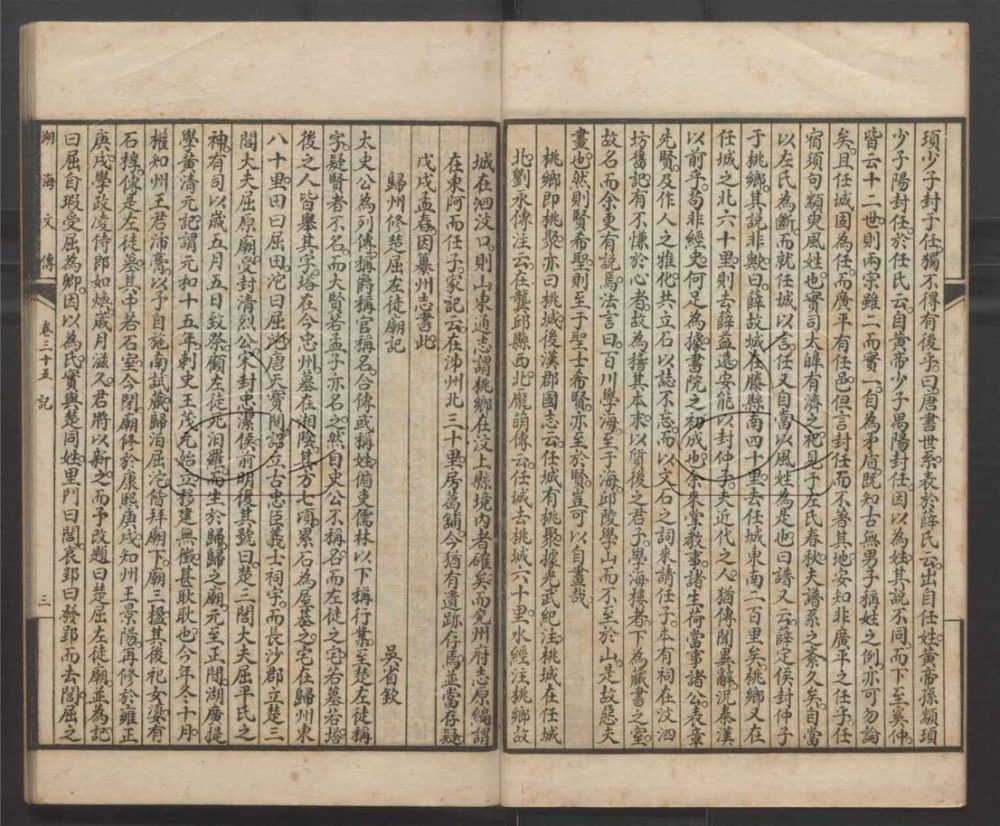 頊少子封于任獨不得有後乎曰唐書世系表於薛氏云出自任姓黃帝孫顓頊
少子陽封任於任氏云自黃帝少子禺陽封任因以為姓其說不同而下至奚仲
皆云十二世則兩宗雖二而實一自為矛盾既知古無男子稱姓之例亦可勿論
矣且任城固為任而廣平有任邑但言封任而不著其地安知非廣平之任子任
宿須句顓臾風姓也實司太皞有濟之祀見于左氏春秋夫譜系之紊久矣自當
以左氏為斷而就任城以言任又自當以風姓為是也曰譜又云薛定侯封仲子
于桃鄉其說非歟曰薛故城在滕縣南四十里去任城東南二百里矣桃鄉又在
任城之北六十里則去薛益遠安能以封仲子夫近代之人猶傳聞異辭況秦漢
以前乎苟非經史何足為據書院之初成也余來掌教事諸生荷當事諸公表章
先賢及作人之雅化共立石以誌不忘而以文石之詞來請任子本有祠在汶泗
坊舊記有不慊於心者故為稽其本末以質後之君子學海樓者下為藏書之室
故名而余更有說焉法言曰百川學海至于海邱陵學山而不至於山是故惡夫
畫也然則賢希聖則至于聖士希賢亦至於賢豈可以自畫哉
桃鄉即桃聚亦曰桃城後漢郡國志云任城有桃聚據光武紀注桃城在任城
北劉永傳注云在龔邱縣西北龐萌傳云任城去桃城六十里水經注桃鄉故
城在泗汶口則山東通志謂桃鄉在汶上縣境內者確矣而兗州府志原編謂
在東阿而任子家記云在沛州北三十里房葛鋪今猶有遺跡存焉並當存疑
戊戌孟春因纂州志書此
歸州修楚屈左徒廟記
吳省欽
太史公為列傳稱爵稱官稱名合傳或稱姓循吏儒林以下稱行業至楚左徒稱
字疑賢者不名而大賢若孟子亦名之然自史公不稱名而左徒之宅若墓若塔
後之人皆舉其字塔在今忠州墓在湘陰其方七項累石為屋基之宅在歸州東
八十里田曰屈田沱曰屈沱唐天寶間詔立古忠臣義士祠宇而長沙郡立楚三
閭大夫屈原廟受封清烈公宋封忠潔侯前明復其號曰楚三閭大夫屈平氏之
神有司以歲五月五日致祭顧左徒沉汨羅而生於歸歸之廟元至正間湖廣提
學黃清元記謂元和十五年刺史王茂元始立移建無徵甚耿耿也今年冬十月
權知州王君沛膏以予自施南試蕆歸泊屈沱偕拜廟下廟三楹其後祀女嬃有
石穟傳是左徒墓其中若石室今閉廟修於康熙庚戌知州王景陽再修於雍正
庚戌學政凌侍郎如煥歲月滋久君將以新之而予改題曰楚屈左徒廟並為記
曰屈自瑕受屈為卿因以為氏實與楚同姓里門曰閭哀郢曰發郢而去閭屈之
湖海文傳
卷三十五 記
三